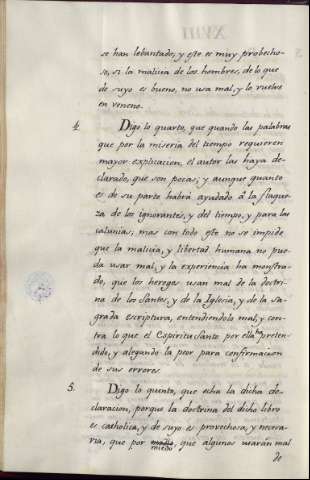 se han lebantado, y este es muy probecho-
so, si la malicia de los hombres, de lo que
de suyo es bueno, no usa mal, y lo vuelve
en veneno.
4. Digo lo quarto, que quando las palabras
que por la miseria del tiempo requieren
mayor explicacion, el autor las haya de-
clarado, que son pocas; y aunque quanto
es de su parte habrá ayudado â la flaque-
za de los ignorantes, y del tiempo, y para las
calunias; mas con todo esto no se impide
que la malicia, y libertad humana no pue-
da usar mal, y la experiencia ha mostra-
do, que los hereges usan mal de la doctri-
na de los Santos, y de la Iglesia, y de la sa-
grada escriptura, entendiendola mal, y con-
tra lo que el Espiritu Santo por ella ha preten-
dido, y alegando la peor para confirmacion
de sus errores.
5. Digo lo quinto, que echa la dicha de-
claracion, porque la doctrina del dicho libro
es catholica, y de suyo es provechosa, y necesa-
ria, que por miedo, que algunos usarán mal
de